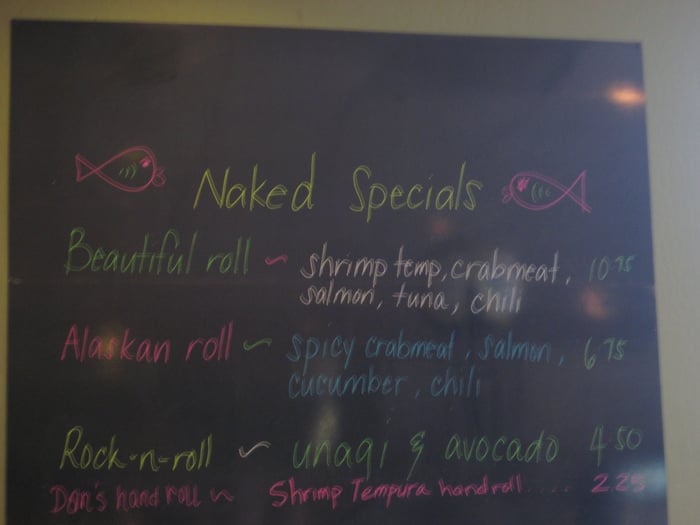 Naked Specials
Beautiful roll ~ shrimp temp, crabmeat, 10.75
salmon, tuna, chili
Alaskan roll ~ spicy crabmeat, salmon, 6.75
cucumber, chili
Rock-n-roll ~ unagi & avocado 4.50
Don's hand roll ~ Shrimp Tempura handroll..... 2.25